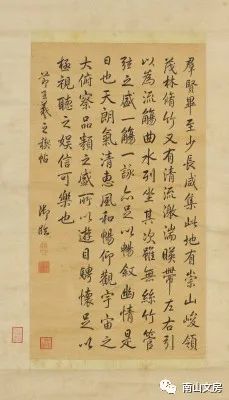 羣賢畢至少長咸集此地有崇山峻領
茂林脩竹又有清流激湍暎帶左右引
以為流觴曲水列坐其次雖無絲竹管
弦之盛一觴一詠亦足以暢敘幽情是
日也天朗氣清惠風和暢仰觀宇宙之
大俯察品類之盛所以遊目騁懷足以
極視聽之娛信可樂也
節王羲之稧帖
御臨
南山文房